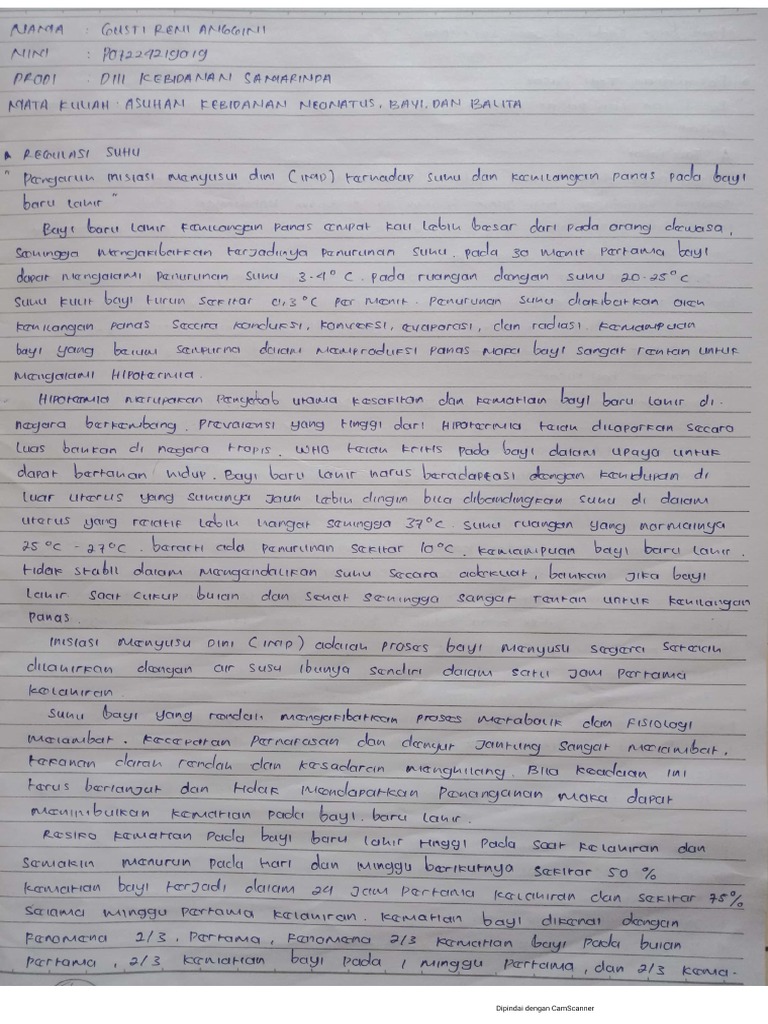 NAMA : GUSTI RENI ANGGINI
NIM : P07224219019
PRODI : DIII KEBIDANAN SAMARINDA
MATA KULIAH : ASUHAN KEBIDANAN NEONATUS, BAYI, DAN BALITA
REGULASI SUHU
" Pengaruh inisiasi menyusui dini (IMD) terhadap suhu dan kehilangan panas pada bayi
baru lahir "
Bayi baru lahir kehilangan panas empat kali lebih besar dari pada orang dewasa,
sehingga mengakibatkan terjadinya penurunan suhu. pada 30 menit pertama bayi
dapat mengalami penurunan suhu 3-4°C. pada ruangan dengan suhu 20-25°C
suhu kulit bayi turun sekitar 0,3°C per menit. penurunan suhu diakibatkan oleh
kehilangan panas secara konduksi, konveksi, evaporasi, dan radiasi. kemampuan
bayi yang belum sempurna dalam memproduksi panas maka bayi sangat rentan untuk
mengalami HIPOTERMIA.
HIPOTERMIA merupakan penyebab utama kesakitan dan kematian bayi baru lahir di
negara berkembang. prevalensi yang tinggi dari HIPOTERMIA telah dilaporkan secara
luas bahkan di negara tropis. WHO telah kritis pada bayi dalam upaya untuk
dapat bertahan hidup. Bayi baru lahir harus beradaptasi dengan kehidupan di
luar uterus yang suhunya jauh lebih dingin bila dibandingkan suhu di dalam
uterus yang relatif lebih hangat sehingga 37°C. suhu ruangan yang normalnya
25°C - 27°C. berarti ada penurunan sekitar 10°C. kemampuan bayi baru lahir.
tidak stabil dalam mengandalikan suhu secara adekuat, bahkan jika bayi
lahir saat cukup bulan dan sehat sehingga sangat rentan untuk kehilangan
panas.
Inisiasi Menyusu Dini (IMD) adalah proses bayi menyusu segera setelah
dilahirkan dengan air susu ibunya sendiri dalam satu jam pertama
kelahiran.
Suhu bayi yang rendah mengakibatkan proses metabolik dan fisiologi
melambat. kecepatan pernafasan dan denyut jantung sangat melambat,
tekanan darah rendah dan kesadaran menghilang. Bila keadaan ini
terus berlanjut dan tidak mendapatkan penanganan maka dapat
menimbulkan kematian pada bayi baru lahir.
Resiko kematian pada bayi baru lahir tinggi pada saat kelahiran dan
semakin menurun pada hari dan minggu berikutnya sekitar 50%
kematian bayi terjadi dalam 24 jam pertama kelahiran dan sekitar 75%
selama minggu pertama kelahiran. kematian bayi dikenal dengan
Fenomena 2/3, pertama, Fenomena 2/3 kematian bayi pada bulan
pertama, 2/3 kematian bayi pada 1 minggu pertama, dan 2/3 kema-
Dipindai dengan CamScanner